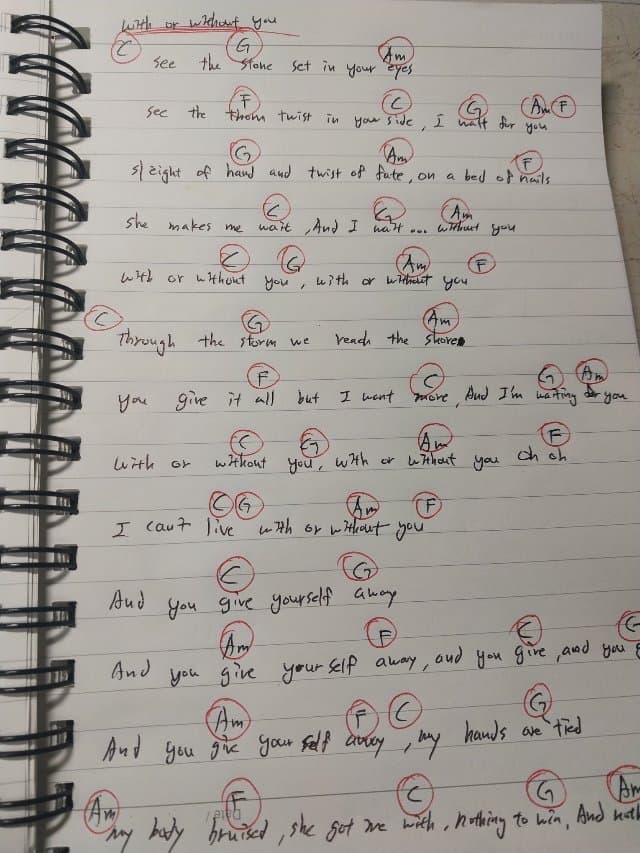 with or without you
C G Am
see the stone set in your eyes
F C G Am F
see the thorn twist in your side, I wait for you
G Am F
slight of hand and twist of fate, on a bed of nails
C G Am
she makes me wait, And I wait... without you
C G Am F
with or without you, with or without you
C G Am
Through the storm we reach the shore
F C G Am
you give it all but I want more, And I'm waiting for you
C G Am F
with or without you, with or without you oh oh
C G Am F
I can't live with or without you
C G
And you give yourself away
Am F C G
And you give yourself away, and you give, and you
Am F C G
And you give your self away, my hands are tied
Am F C G Am
my body bruised, she got me with, nothing to win, And